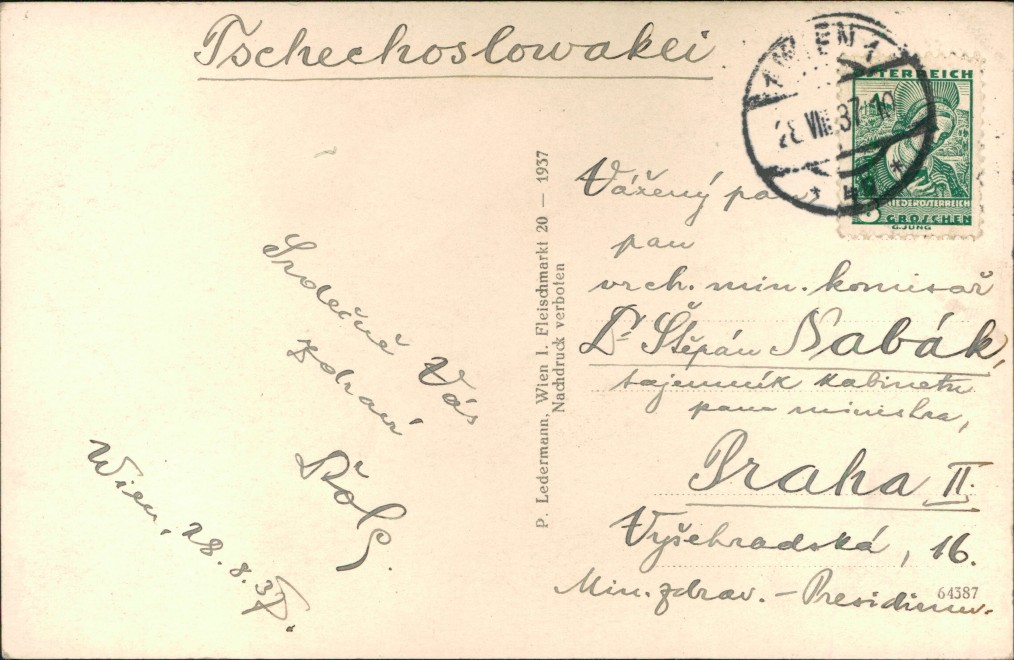 Tschechoslowakei
WIEN 1
28. VIII. 37. 10
ÖSTERREICH
NIEDERÖSTERREICH
GROSCHEN
G. JUNG
Vážený
pan
vrch. min. komisař
Dr Štěpán Nabák,
tajemník kabinetu
pana ministra,
Praha II.
Vyšehradská, 16.
Min. zdrav. – Presidium.
64387
P. Ledermann, Wien I. Fleischmarkt 20 — 1937
Nachdruck verboten
Srdečně Vás
zdraví
Wien, 28. 8. 37.